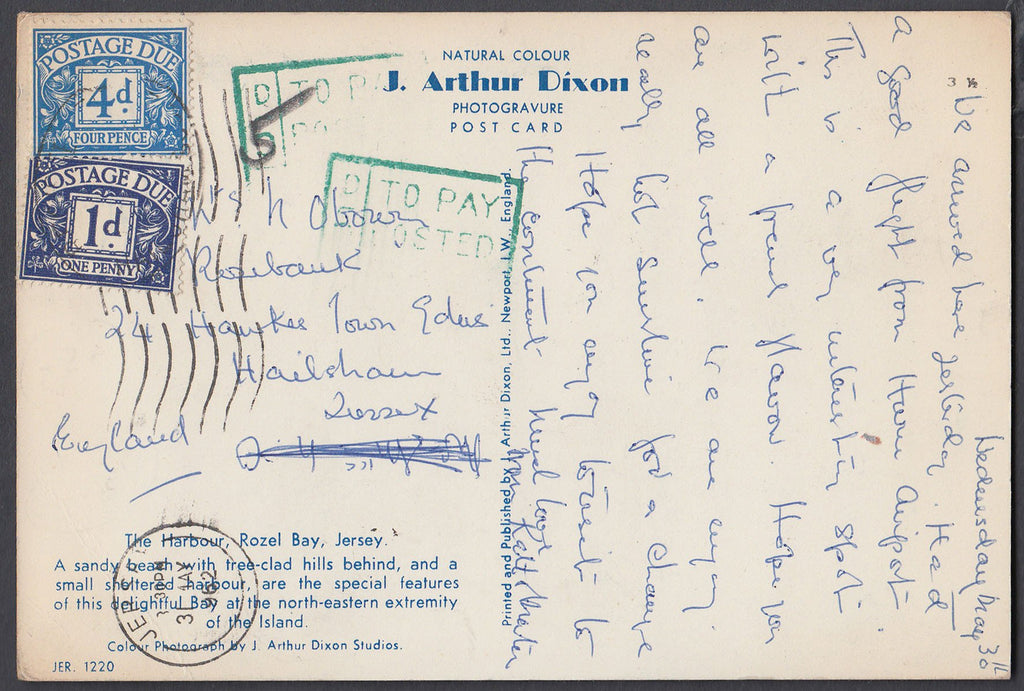 POSTAGE DUE
4d
FOUR PENCE
POSTAGE DUE
1d
ONE PENNY
D TO PAY
5
D TO PAY
POSTED
NATURAL COLOUR
J. Arthur Dixon
PHOTOGRAVURE
POST CARD
24 Hawkes Town
Hailsham
Sussex
England
Printed and Published by J. Arthur Dixon, Ltd., Newport, I.W., England.
The Harbour, Rozel Bay, Jersey.
A sandy beach with tree-clad hills behind, and a
small sheltered harbour, are the special features
of this delightful Bay at the north-eastern extremity
of the Island.
Colour Photograph by J. Arthur Dixon Studios.
JER. 1220
JERSEY
31 MAY
1962
3 ½
Wednesday May 30th
We arrived here yesterday. Had
a good flight from Airport
This is a very interesting spot
with a Hope you
are all well. We are enjoying
really hot Sunshine for a change
Hope you enjoy to
the continent. Much love